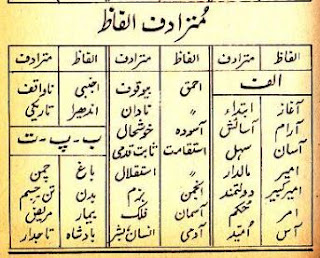 مُترادف الفاظ
الفاظ مترادف الفاظ مترادف الفاظ مترادف
الف
آغاز ابتداء
آرام آسائش
آسان سہل
امیر مالدار
امیر کبیر دولتمند
امر حُکم
آس اُمید
احمق بیوقوف
〃 نادان
آسودہ خوشحال
استقامت ثابت قدمی
〃 استقلال
انجمن بزم
آسمان فلک
آدمی انسان بشر
اجنبی ناواقف
اندھیرا تاریکی
ب ۔ پ ۔ ت
باغ چمن
بدن تن ۔ جسم
بیمار مریض
بادشاہ تاجدار